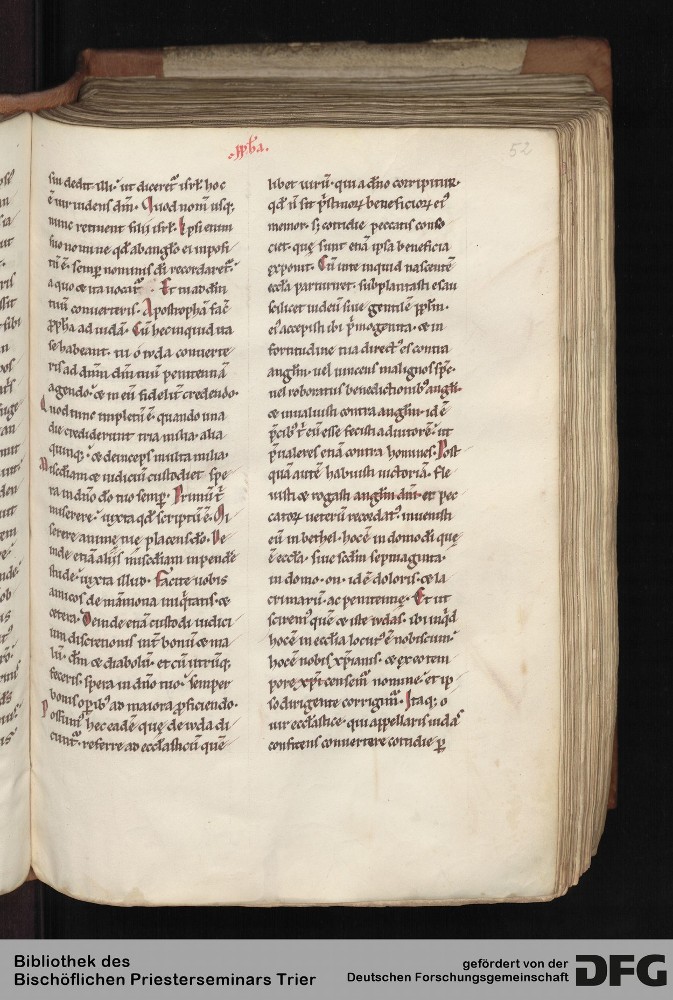 52
sui dedit illi. ut diceret isrl hoc
ē uir uidens dm̄. Quod nom̄ usq;
nunc retinent filii isrl. Ipsi enim
suo nomine qđ ab anglo ei inposi
tū ē. semp nominis di recordaret.
a quo ce ita uocat. Et tu ad dm̄
tuū conuerteris. Apostropham fac̄
ꝓpha ad iudā. Cū hec inquid ita
se habeant. tu o iuda conuerte
ris ad dnm̄ dm̄ tuū penitentiā
agendo. ce in eū fidelit̄ credendo.
Quod tunc impletū ē. quando una
die crediderunt tria milia. alia
quinq;. ce deinceps multa milia.
Misc̄diam ce iudiciū custodi et spe
ra in dn̄o do tuo semp. Primū ē
miserere. iuxta qđ scriptū ē. Mi
serere anime tue placens do. De
inde etiā aliis misc̄diam inpende
stude. iuxta illud. Facite uobis
amicos de māmona iniq̄tatis. ce
cetera. Deinde etiā custodi iudici
um discretionis int̄ bonū ce ma
lū. dm̄ ce diabolū. et cū utrūq;
feceris. spera in dn̄o tuo. semper
bonis opib; ad maiora ꝓficiendo.
Possunt hec eadē que de iuda di
cunt. referre ad eccl̄asticū quē
libet uirū. qui a dn̄o corripitur.
qđ ū sit p̄stinorꝝ beneficiorꝝ ei
memor. s; cotidie peccatis conso
ciet. que sunt etiā ipsa beneficia
exponit. Cū inte inquid nascentē
eccl̄a parturiret. subplantasti esau
scilicet iudeū siue gentilē pplm̄.
ei accepisti ibi p̄mogenita. ce in
fortitudine tua direct es contra
anglm̄. uel uincens malignos spc̄.
uel roboratus benedictionib; angli.
ce inualuisti contra anglm̄. id ē
p̄cib; t̄ eū esse fecisti adiutorē. ut
p̄ualeres etiā contra homines. Post
quā autē habuisti uictoriā. fle
uisti ce rogasti anglm̄ dm̄. et pec
catorꝝ ueterū recordat. inuenisti
eū in bethel. hoc ē in domo di que
ē eccl̄a. siue sc̄dm septuaginta.
in domo. on. id ē doloris. ce la
crimarū. ac penitentie. Et ut
scirem quē ce iste iudas. ibi inq̄d
hoc ē in eccl̄ia locut ē nobiscum.
hoc nobis xp̄ianis. ce ex eo tem
pore xp̄i censem̄ nomine. et ip
so dirigente corrigim̄. Itaq; o
uir eccl̄astice. qui appellaris iudas
confitens conuertere cotidie ꝑ
Bibliothek des
Bischöflichen Priesterseminars Trier
gefördert von der
Deutschen Forschungsgemeinschaft
DFG